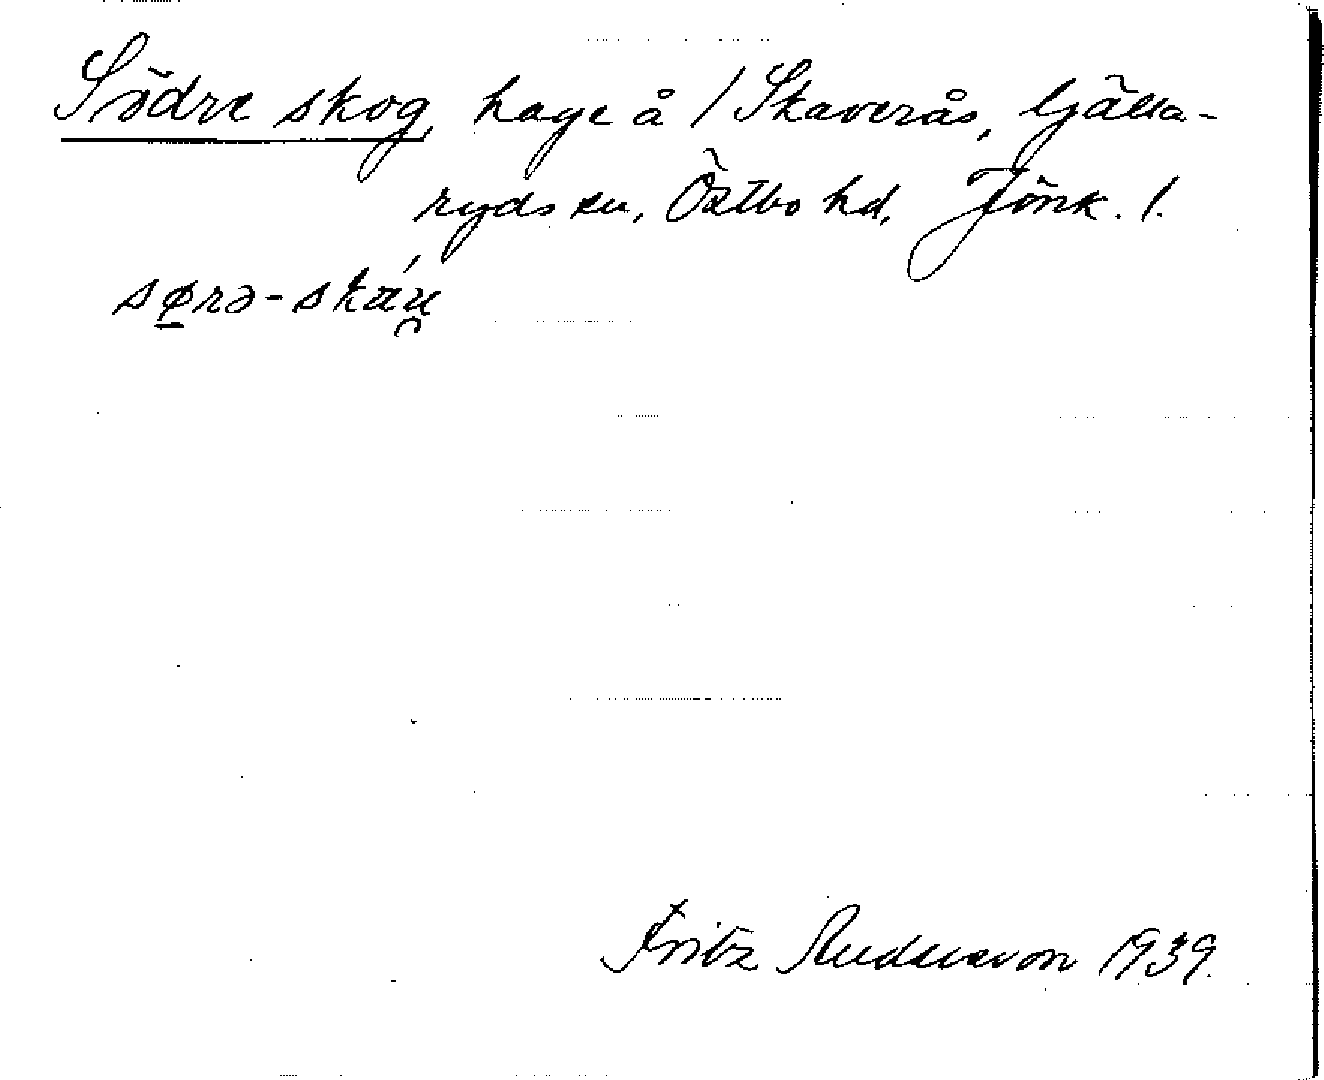 Södre skog, hage å / Skaverås, Gälla-
ryds sn, Östbo hd, Jönk. l.
sørə-skæu̯
Fritz 1939.